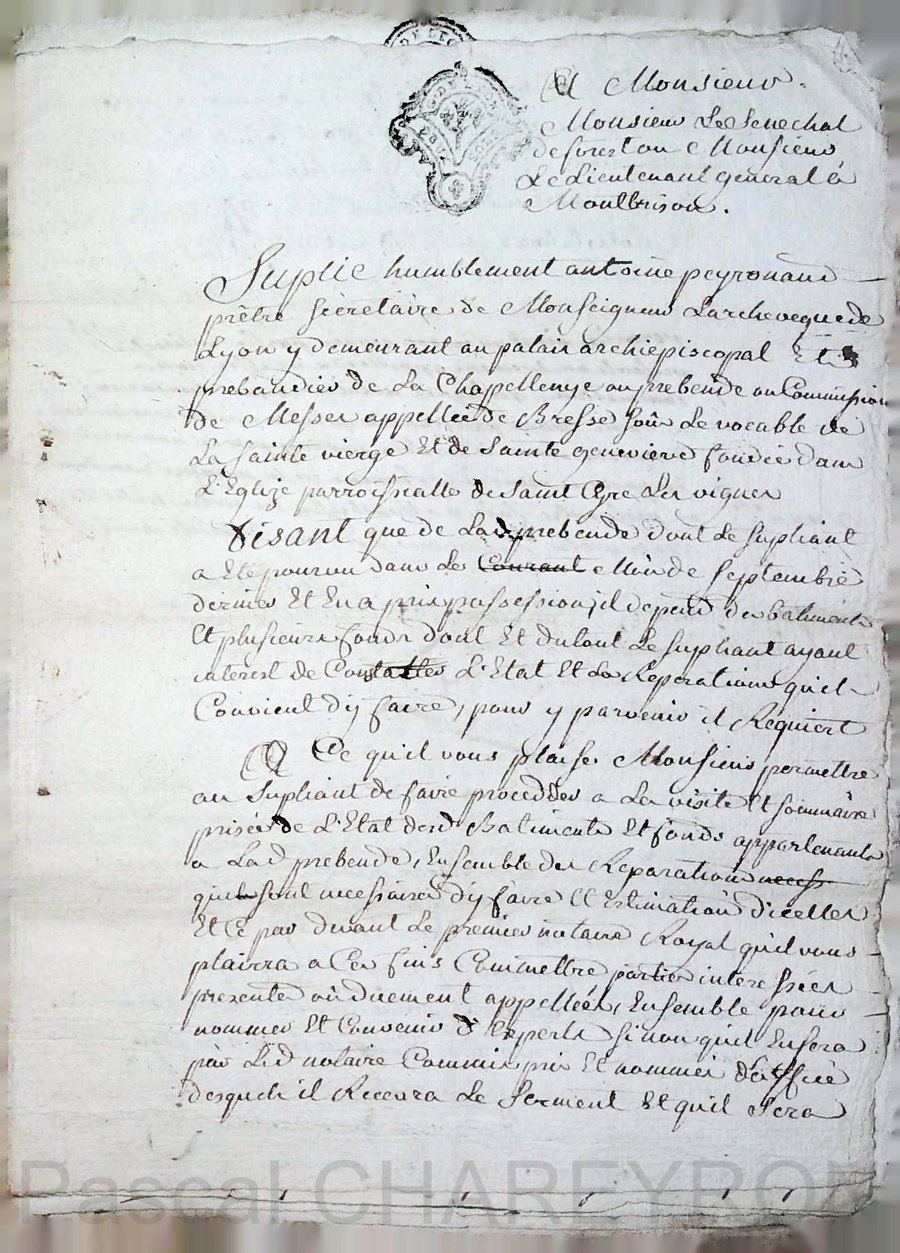 A Monsieur
Monsieur Le Senechal
de forest ou Monsieur
Le Lieutenant general à
Montbrison.
Suplie humblement antoine peyronand
prêtre secretaire de Monseigneur Larcheveque de
Lyon y demeurant au palais archiepiscopal Et
prebandier de La Chappellenye ou prebende ou Commission
de Messes appellée de Bresse soûs Le vocable de
La sainte vierge Et de Sainte genevieve fondée dans
L'Eglize parroissialle de Saint Cyre Les vignes
Disant que de Lad prebende dont Le supliant
a Eté pourvu dans Le Courant Mois de Septembre
dernier Et En a pris possession, il depend des batiments
Et plusieurs fonds dont Et du tout Le supliant ayant
interest de Constatter L'Etat Et Les Reparations qu'il
Convient d'y faire, pour y parvenir il Requiert
A Ce qu'il vous plaise Monsieur permettre
au Supliant de faire proceder a La visite Et sommaire
prisée de L'Etat desd Batiments Et fonds appartenants
a Lad prebende, Ensemble des Reparations necess
qui sont necessaires d'y faire Et Estimation d'icelles
Et Ce par devant Le premier notaire Royal qu'il vous
plairra a Ces fins Commettre parties interessées
presentes où duement appellées, Ensemble pour
nommer Et Convenir d'Experts sinon qu'il En sera
par Led notaire Commis pris Et nommés d'office
desquels il Recevra Le Serment Et qu'il Sera
Pascal CHAREYRON